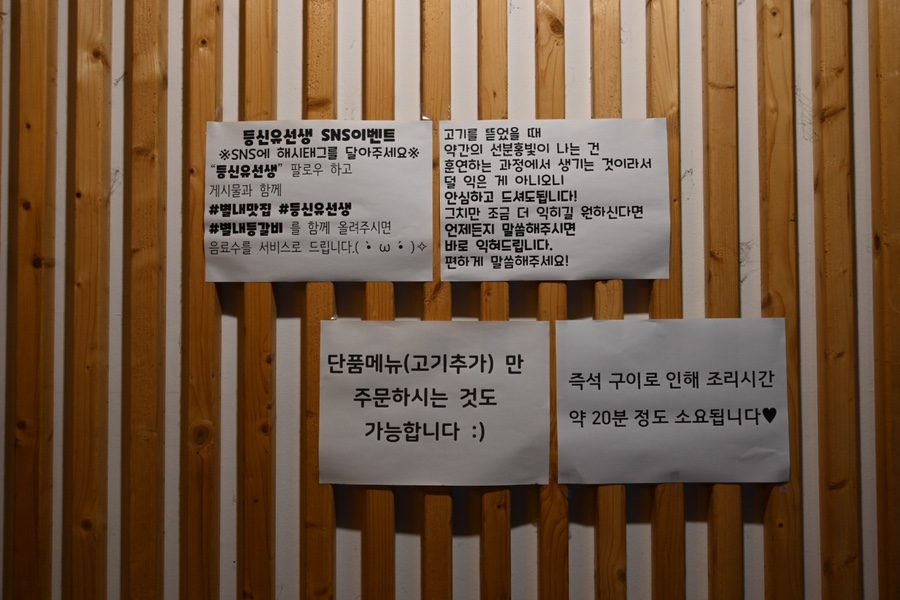 등신유선생 SNS이벤트
※SNS에 해시태그를 달아주세요※
"등신유선생" 팔로우 하고
게시물과 함께
#별내맛집 #등신유선생
#별내등갈비 를 함께 올려주시면
음료수를 서비스로 드립니다.( •̀ ω •́ )✧
고기를 뜯었을 때
약간의 선분홍빛이 나는 건
훈연하는 과정에서 생기는 것이라서
덜 익은 게 아니오니
안심하고 드셔도됩니다!
그치만 조금 더 익히길 원하신다면
언제든지 말씀해주시면
바로 익혀드립니다.
편하게 말씀해주세요!
단품메뉴(고기추가) 만
주문하시는 것도
가능합니다 :)
즉석 구이로 인해 조리시간
약 20분 정도 소요됩니다♥